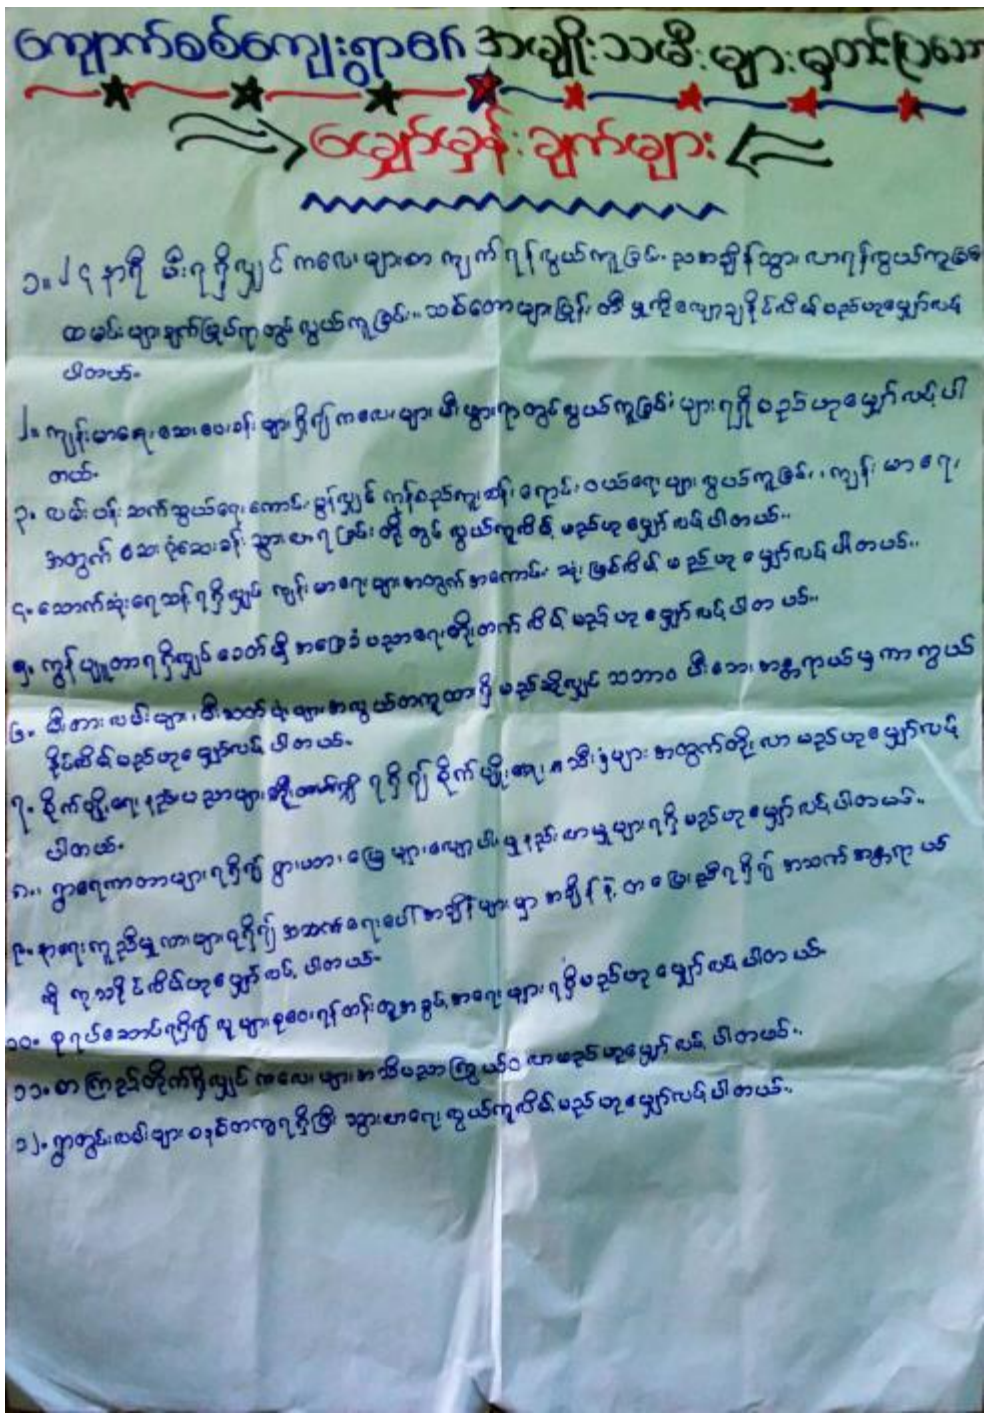 ကျောက်စစ်ကျေးရွာ၏ အမျိုးသမီးများမှတင်ပြသော
မျှော်မှန်းချက်များ
၁။ ၂၄ နာရီ မီးရရှိလျှင် ကလေးများစာကျက်ရန်လွယ်ကူခြင်း ညအချိန်သွားလာရန်လွယ်ကူခြင်း
ထမင်းများချက်ပြုတ်ရာတွင်လွယ်ကူခြင်း။ သစ်တောများပြုန်းတီးမှုကိုလျော့ချနိုင်လိမ့်မည်ဟုမျှော်လင့်
ပါတယ်။
၂။ ကျန်းမာရေးဆေးပေးခန်းများရှိ၍ ကလေးများမီးဖွားရာတွင်လွယ်ကူခြင်းများရရှိမည်ဟုမျှော်လင့်ပါ
တယ်။
၃။ လမ်းပန်းဆက်သွယ်ရေးကောင်းမွန်လျှင် ကုန်စည်ကူးသန်းရောင်းဝယ်ရေးများလွယ်ကူခြင်း၊ ကျန်းမာရေး
အတွက် ဆေးရုံဆေးခန်းသွားလာရခြင်းတို့တွင် လွယ်ကူလိမ့်မည်ဟုမျှော်လင့်ပါတယ်။
၄။ သောက်သုံးရေသန့်ရရှိလျှင် ကျန်းမာရေးများအတွက်အကောင်းဆုံးဖြစ်လိမ့်မည်ဟု မျှော်လင့်ပါတယ်။
၅။ ကွန်ပျူတာရရှိလျှင် ခေတ်မှီ အခြေခံပညာရေးတိုးတက်လိမ့်မည်ဟုမျှော်လင့်ပါတယ်။
၆။ မီးတားလမ်းများ၊ မီးသတ်ပုံးများအလွယ်တကူထားရှိမည်ဆိုလျှင် သဘာဝမီးဘေးအန္တရာယ်မှကာကွယ်
နိုင်လိမ့်မည်ဟုမျှော်လင့်ပါတယ်။
၇။ စိုက်ပျိုးရေးနည်းပညာများ ရရှိ၍ စိုက်ပျိုးရေးသီးနှံများအတွက်တိုးလာမည်ဟုမျှော်လင့်
ပါတယ်။
၈။ ရွာရေကာတာများရရှိ၍ ရွာမတားမြေများလျော့ပါးမှုနည်းလာမှုများရရှိမည်ဟုမျှော်လင့်ပါတယ်။
၉။ နာရေးကူညီမှုကားများရရှိ၍ အသက်ရေးပေါ်အချိန်များမှာ အချိန်နဲ့တပြေးညီရရှိ၍ အသက်အန္တရာယ်
ကို ကုသနိုင်လိမ့်ဟုမျှော်လင့်ပါတယ်။
၁၀။ စုရပ်ဆောင်ရရှိ၍ လူများစုဝေးရန်တန်းတူအခွင့်အရေးများရရှိမည်ဟုမျှော်လင့်ပါတယ်။
၁၁။ စာကြည့်တိုက်ရှိလျှင် ကလေးများအသိပညာကြွယ်ဝလာမည်ဟုမျှော်လင့်ပါတယ်။
၁၂။ ရွာတွင်းလမ်းများစနစ်တကျရရှိပြီး သွားလာရေးလွယ်ကူလိမ့်မည်ဟုမျှော်လင့်ပါတယ်။